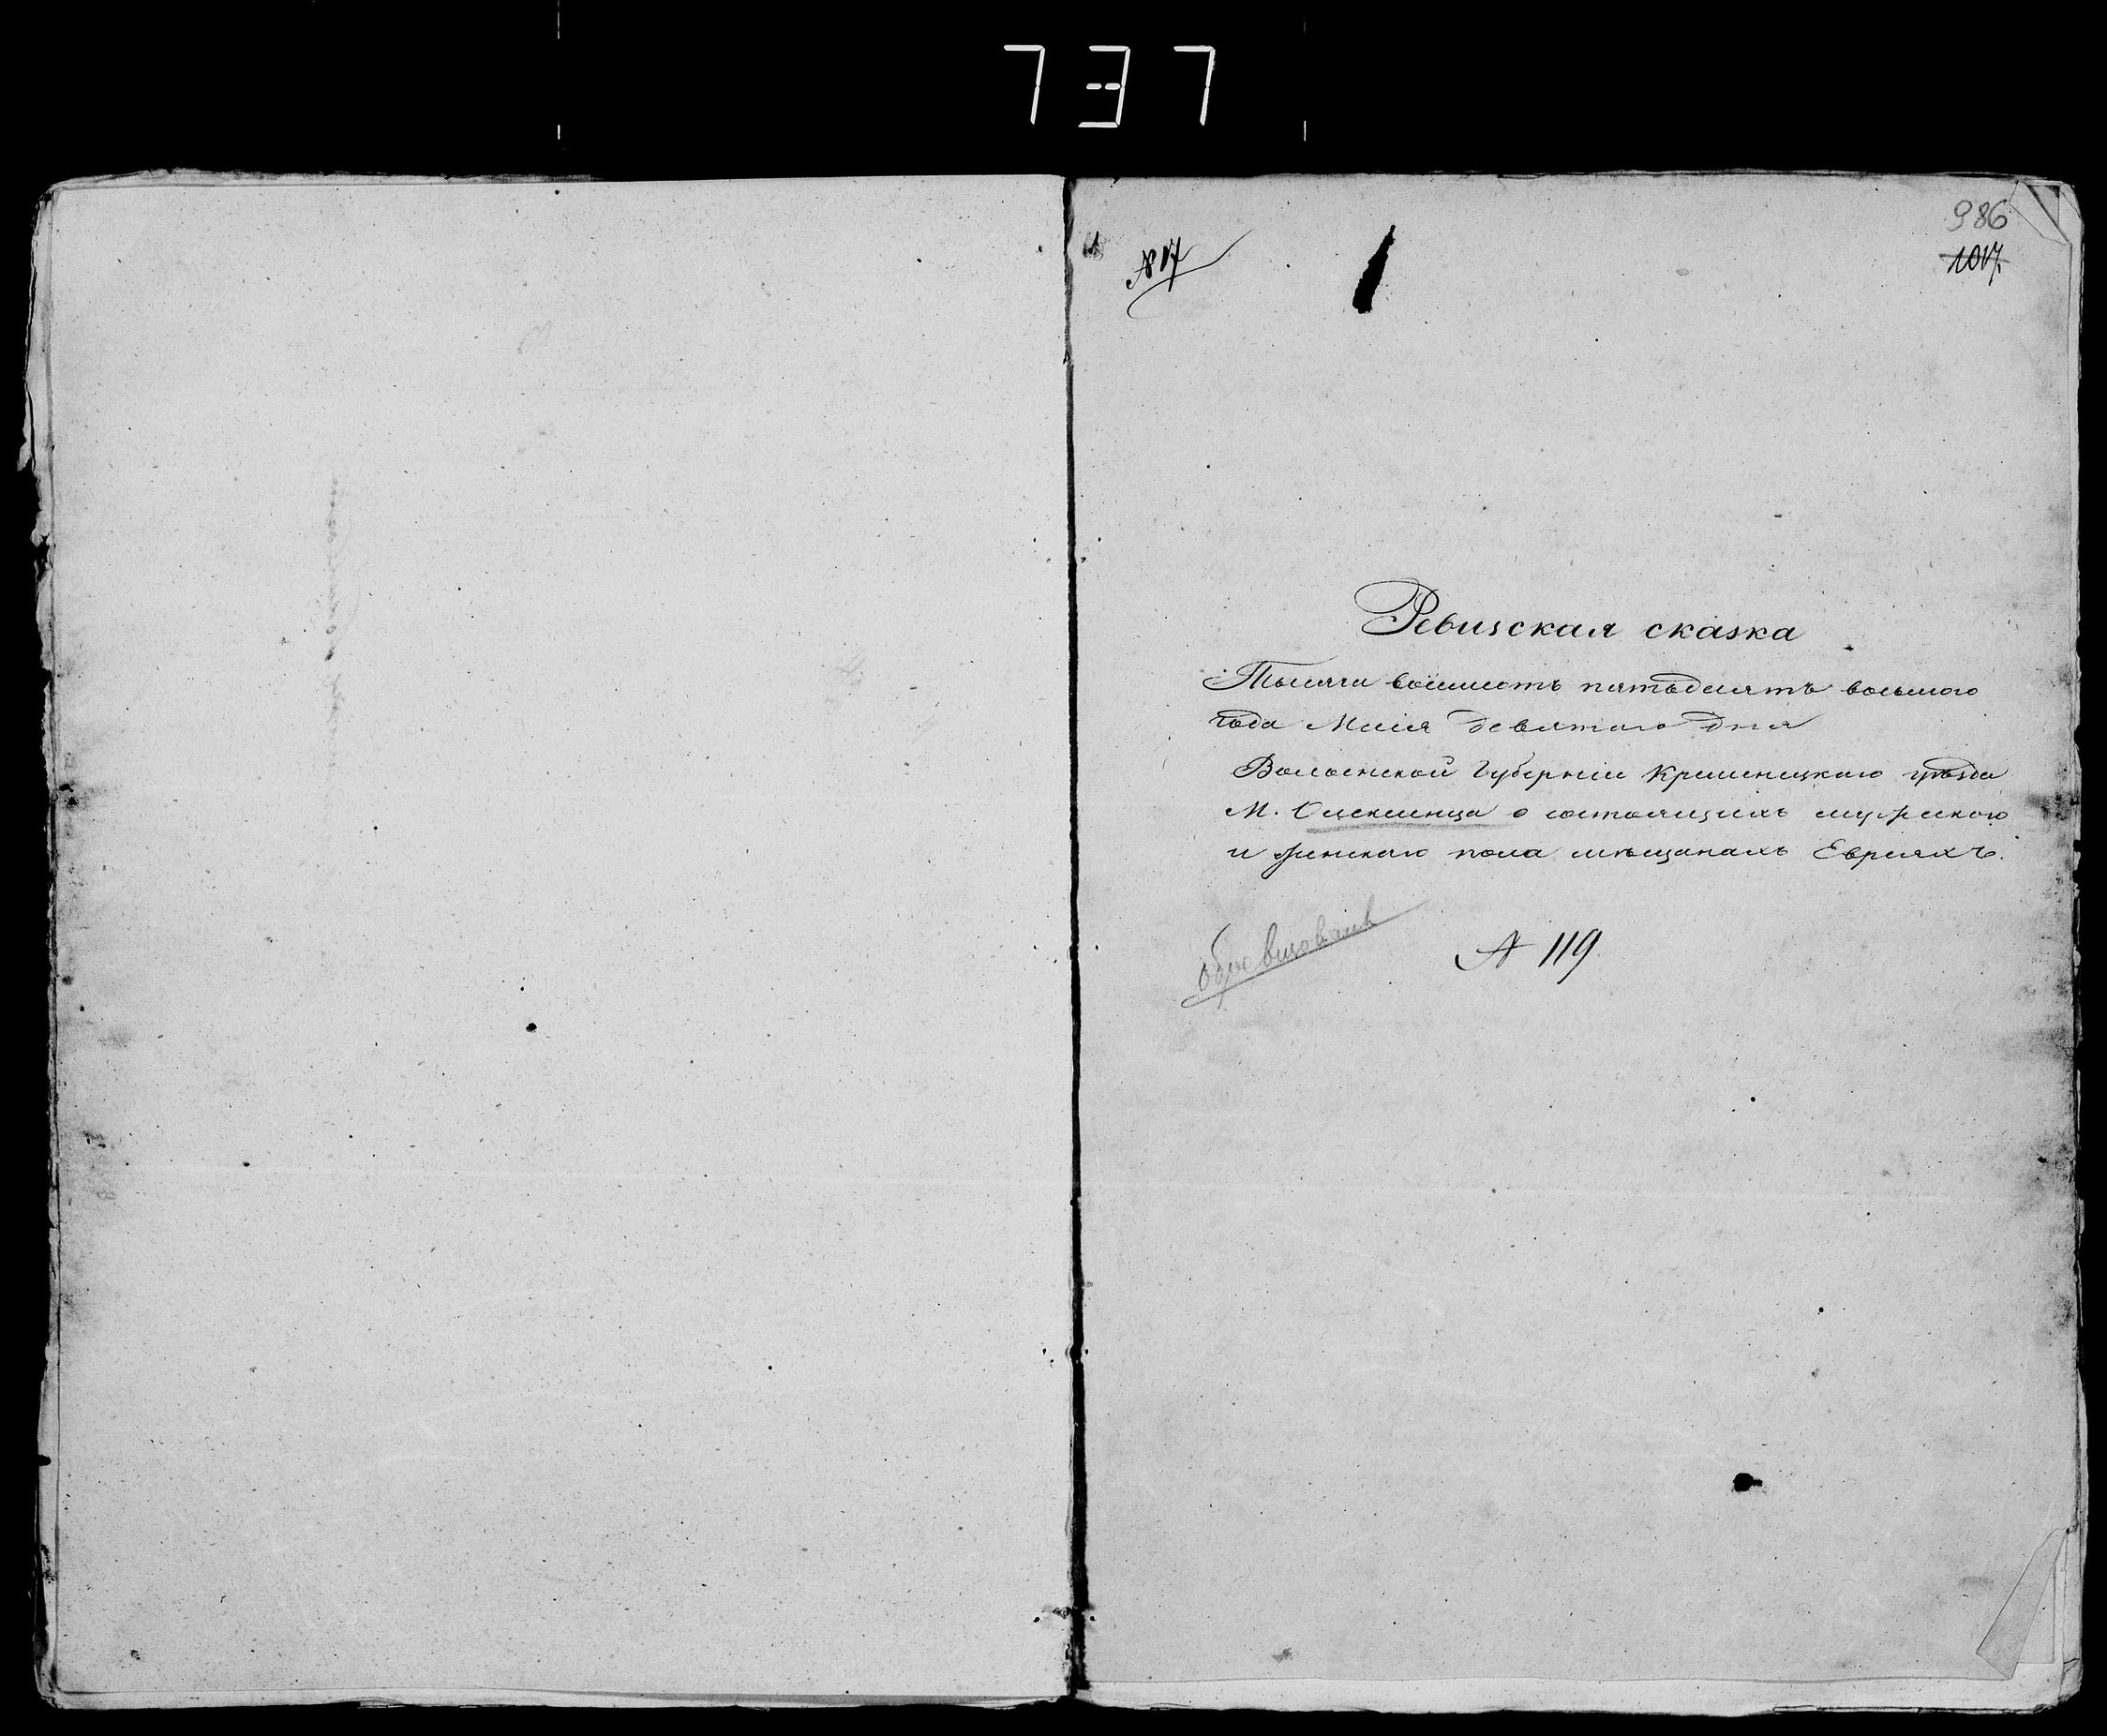 737
986
1017
№ 17
Ревизская сказка
Тысяча восемьсотъ пятьдесятъ восьмого
года Маія девятаго дня
Волынской Губерніи Кременецкаго уѣзда
М. Олексинца о состоящихъ мужескаго
и женскаго пола мѣщанахъ Евреяхъ.
№ 119